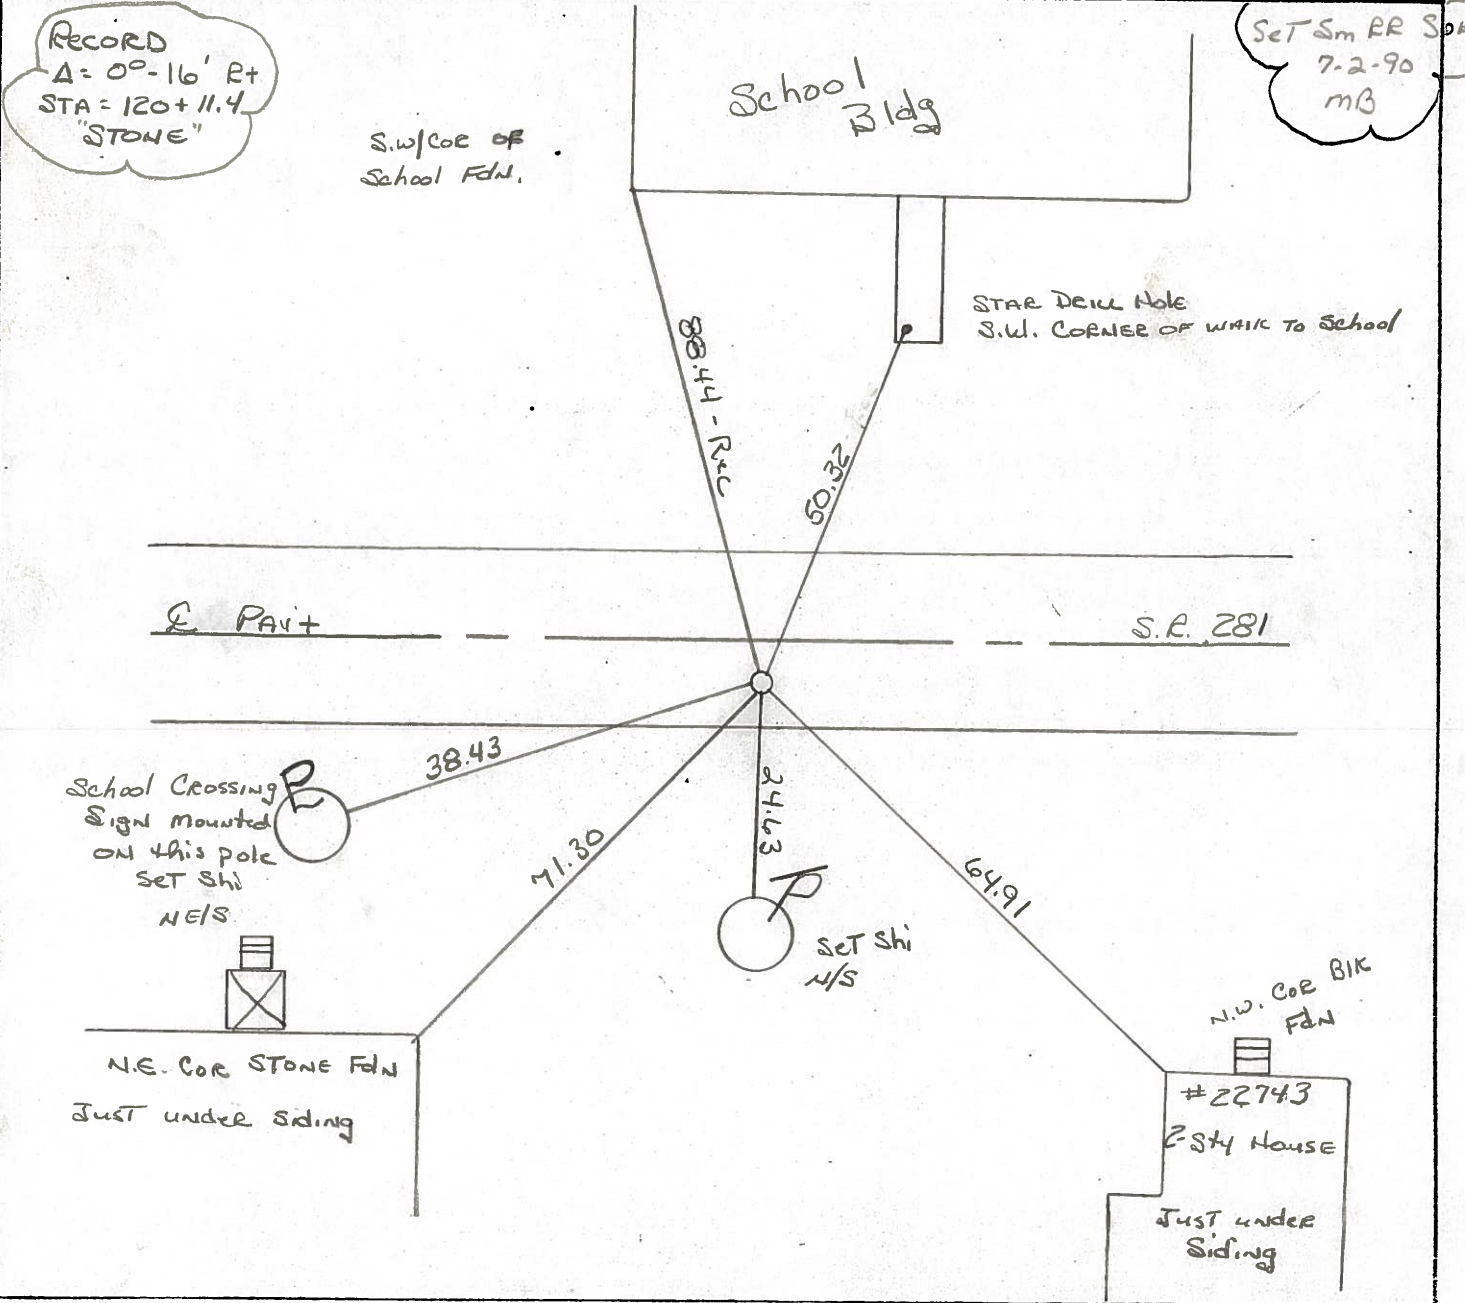 RECORD
Δ = 0°-16' Rt
STA = 120+11.4
"STONE"
S.W/COR OF
School FDN.
School
Bldg
SeT Sm RR
7-2-90
MB
STAR DRILL Hole
S.W. CORNER OF WALK TO School
88.44 - Rec
50.32
℄ PAV't
S.R. 281
38.43
School CROSSING
Sign mounted
ON this pole
SeT Shi
NE/S
71.30
24.63
SeT Shi
N/S
64.91
N.W. COR BlK
FdN
N.E. COR STONE FdN
JUST under Siding
#22743
2-Sty House
Just under
Siding